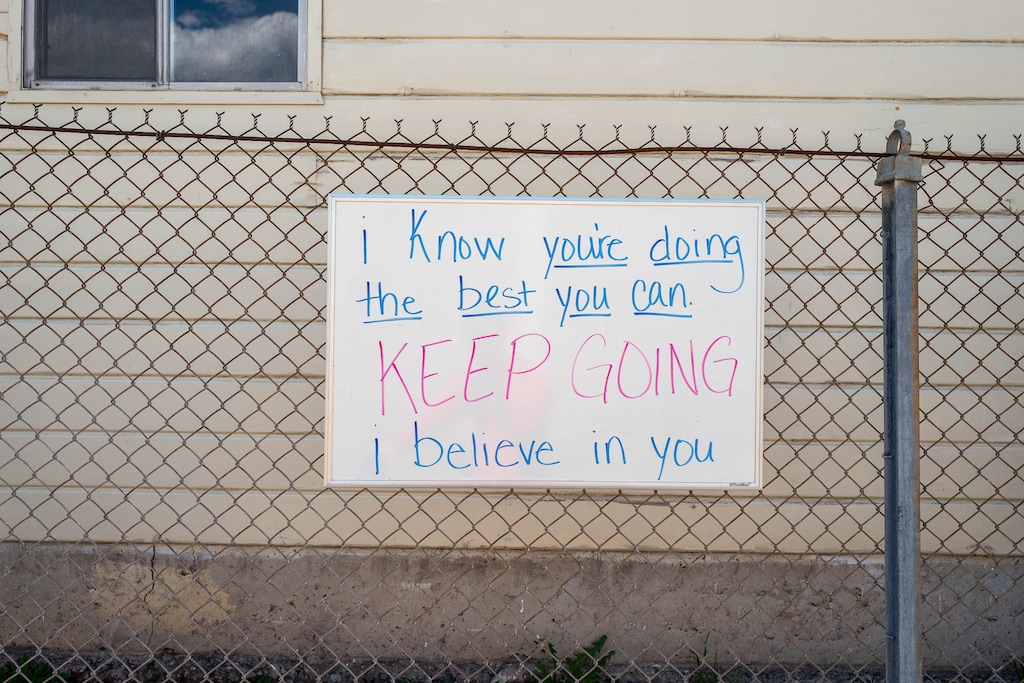 i Know you're doing
the best you can.
KEEP GOING
i believe in you
OfficeMax